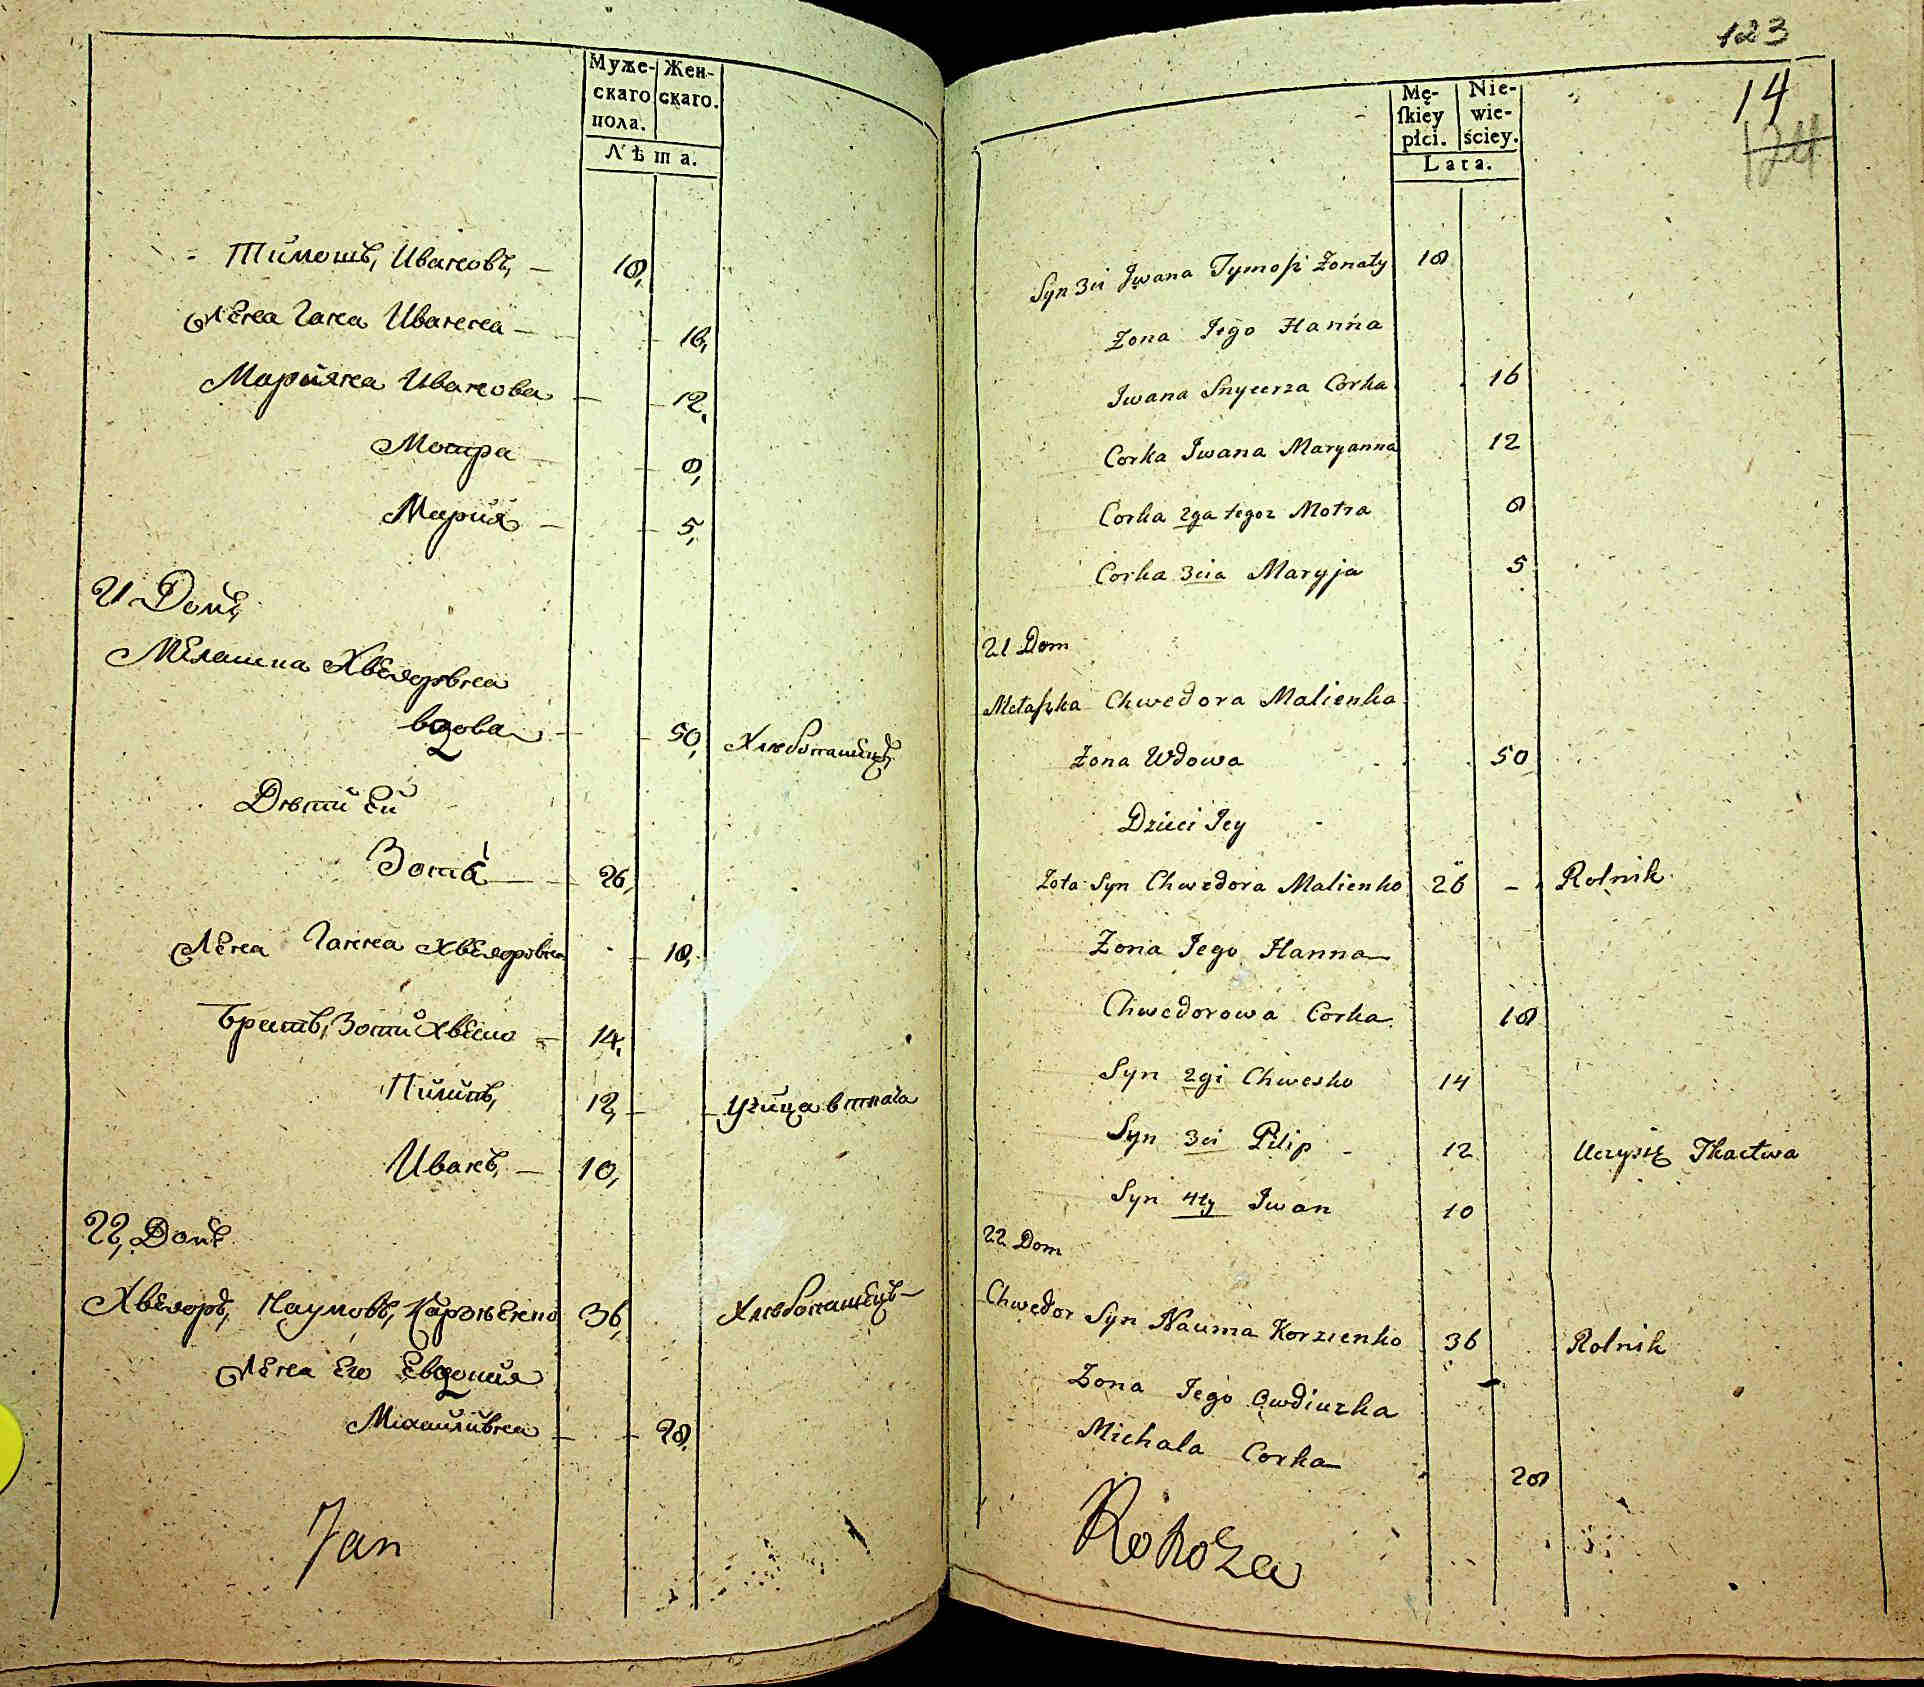 Муже-
скаго
пола.
Жен-
скаго.
Лѣта.
Тимошъ, Ивановъ, — 18,
Жена Гана Иванена — 16,
Марияна Иванова — 12,
Мотра — 8,
Мария — 5,
21 Домъ,
Мелашка Хведоровна
вдова — 50, Хлебопашецъ
Дѣти Ей
Зотъ — 26,
Жена Ганна Хведоровна 18,
Братъ, Зоти Хвеско — 14,
Пилипъ, 12, — учица в ткача
Иванъ, — 10,
22, Домъ
Хведоръ, Наумовъ, Карзѣенко 36, Хлебопашецъ —
Жена Его Евдокия
Михайливна — 28,
Jan
123
14
124
Mę-
ſkiey
płci.
Nie-
wie-
ściey.
Lata.
Syn 3ci Jwana Tymoſz Żonaty 18
Żona Jego Hanna
Jwana Snycerza Corka 16
Corka Jwana Maryanna 12
Corka 2ga tegoz Motra 8
Corka 3cia Maryja 5
21 Dom
Mełaſzka Chwedora Malienka
Żona Wdowa 50
Dzieci Jey
Zota Syn Chwedora Malienko 26 — Rolnik
Żona Jego Hanna
Chwedorowa Corka 18
Syn 2gi Chwesko 14
Syn 3ci Pilip 12 Uczy się Tkactwa
Syn 4ty Jwan 10
22 Dom
Chwedor Syn Nauma Korzienko 36 Rolnik
Żona Jego Owdiuzka
Michala Corka 28
Rohoza